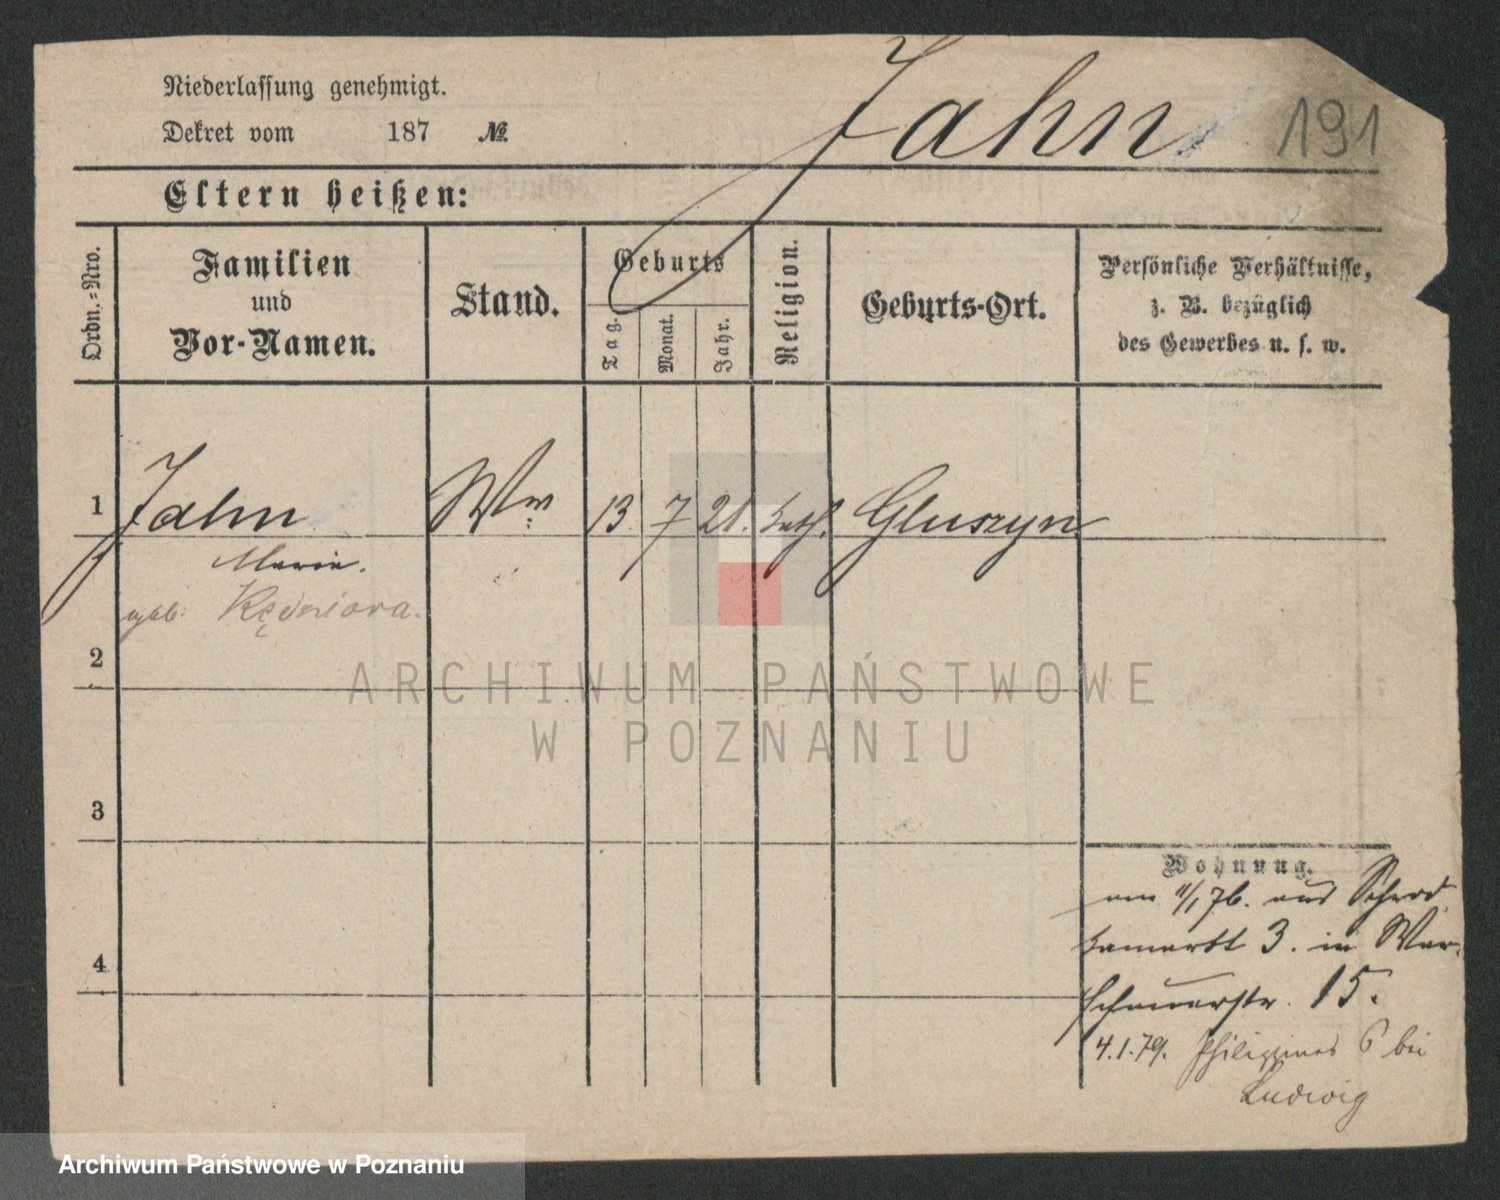 Niederlassung genehmigt.
Jahn 191
Dekret vom 187 №
Eltern heißen:
Ordn.=Nro.
Familien
und
Vor-Namen.
Stand.
Geburts
Tag.
Monat.
Jahr.
Religion.
Geburts-Ort.
Persönliche Verhältnisse,
z. B. bezüglich
des Gewerbes u. s. w.
1 Jahn Ww 13 7 21. kath. Gluszyn
Marie.
geb:
2
ARCHIWUM PAŃSTWOWE
W POZNANIU
3
Wohnung.
am 11/1 76. aus Schrod
kamarkt 3. in War-
4
schauerstr. 15.
4.1.79. 6 bei
Ludwig
Archiwum Państwowe w Poznaniu